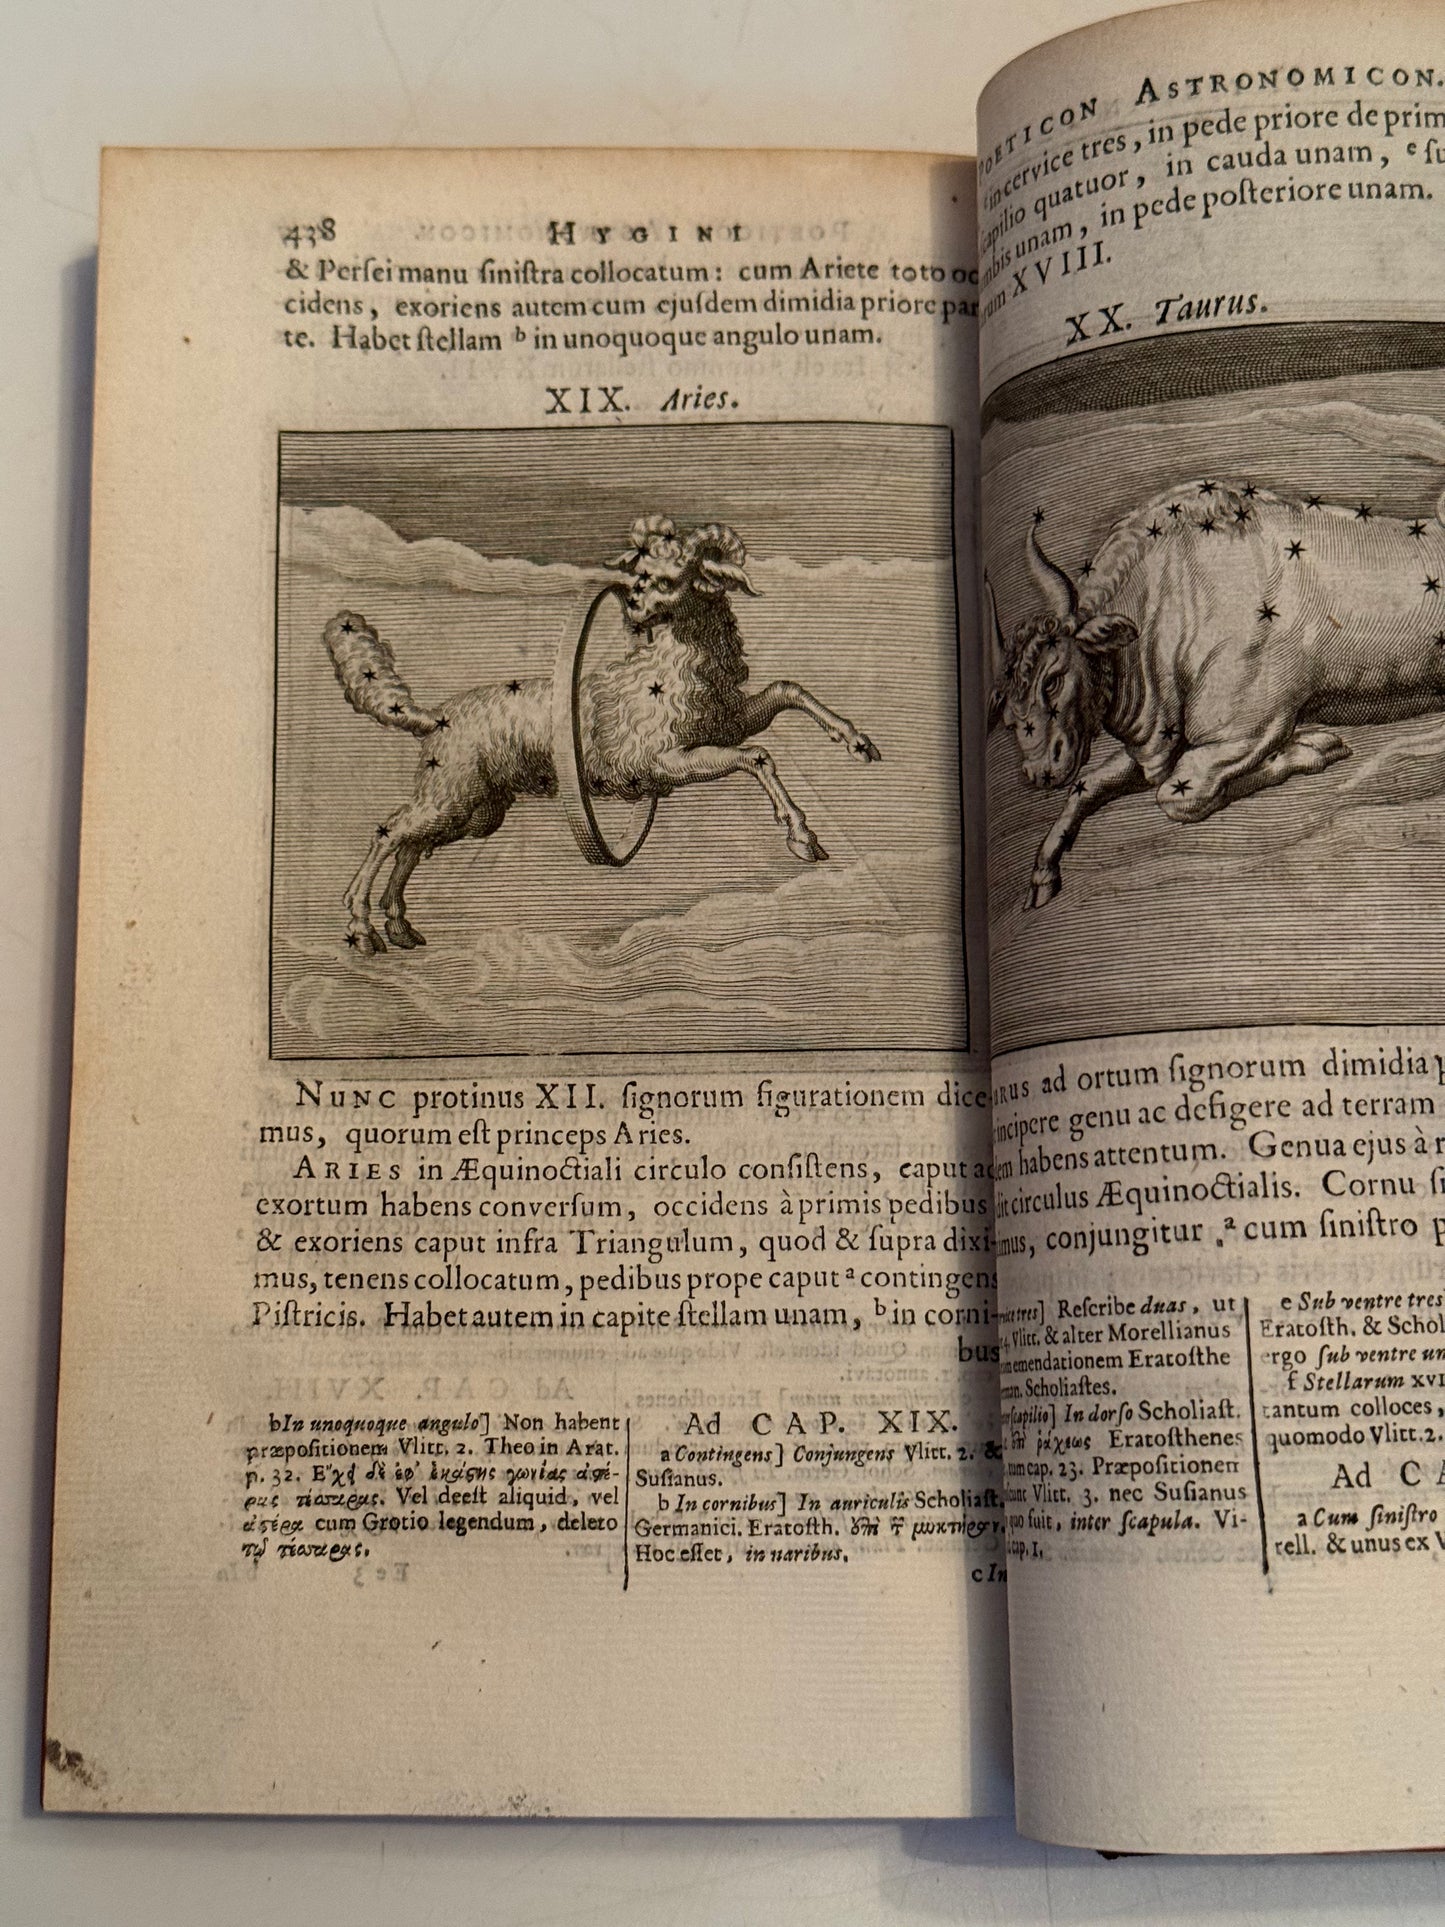 438 HYGINI
& Perſei manu ſiniſtra collocatum: cum Ariete toto oc
cidens, exoriens autem cum ejuſdem dimidia priore par
te. Habet ſtellam ᵇ in unoquoque angulo unam.
XIX. Aries.
NUNC protinus XII. ſignorum figurationem dice
mus, quorum eſt princeps Aries.
ARIES in Æquinoctiali circulo conſiſtens, caput ad
exortum habens converſum, occidens à primis pedibus
& exoriens caput infra Triangulum, quod & ſupra dixi-
mus, tenens collocatum, pedibus prope caput ᵃ contingens
Piſtricis. Habet autem in capite ſtellam unam, ᵇ in corni-
bus
b In unoquoque angulo] Non habent
præpoſitionem Vlitt. 2. Theo in Arat.
p. 32. Ἔχει δὲ ἐφ' ἑκάστης γωνίας ἀστέ-
ρας τέσσαρας. Vel deeſt aliquid, vel
ἀστέρα cum Grotio legendum, deleto
τῷ τέσσαρας.
Ad CAP. XIX.
a Contingens] Conjungens Vlitt. 2. &
Suſianus.
b In cornibus] In auriculis Scholiaſt.
Germanici. Eratoſth. ἐπὶ τ̄
Hoc eſſet, in naribus.
c In
POETICON ASTRONOMICON.
in cervice tres, in pede priore de prim
quatuor, in cauda unam, ᵉ ſu
unam, in pede poſteriore unam.
XVIII.
XX. Taurus.
ad ortum ſignorum dimidia p
genu ac defigere ad terram
habens attentum. Genua ejus à r
circulus Æquinoctialis. Cornu ſi
mus, conjungitur ,ᵃ cum ſiniſtro p
tres] Reſcribe duas, ut
Vlitt. & alter Morellianus
emendationem Eratoſthe
Scholiaſtes.
In dorſo Scholiaſt.
ῥάχεως Eratoſthenes
cap. 23. Præpoſitionem
Vlitt. 3. nec Suſianus
fuit, inter ſcapula. Vi-
cap. 1.
e Sub ventre tres
Eratoſth. & Schol
ergo ſub ventre un
f Stellarum XVI
tantum colloces,
quomodo Vlitt. 2.
Ad CA
a Cum ſiniſtro
rell. & unus ex V